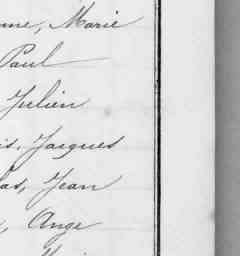 nne, Marie
Paul
Julien
is, Jacques
las, Jean
, Ange